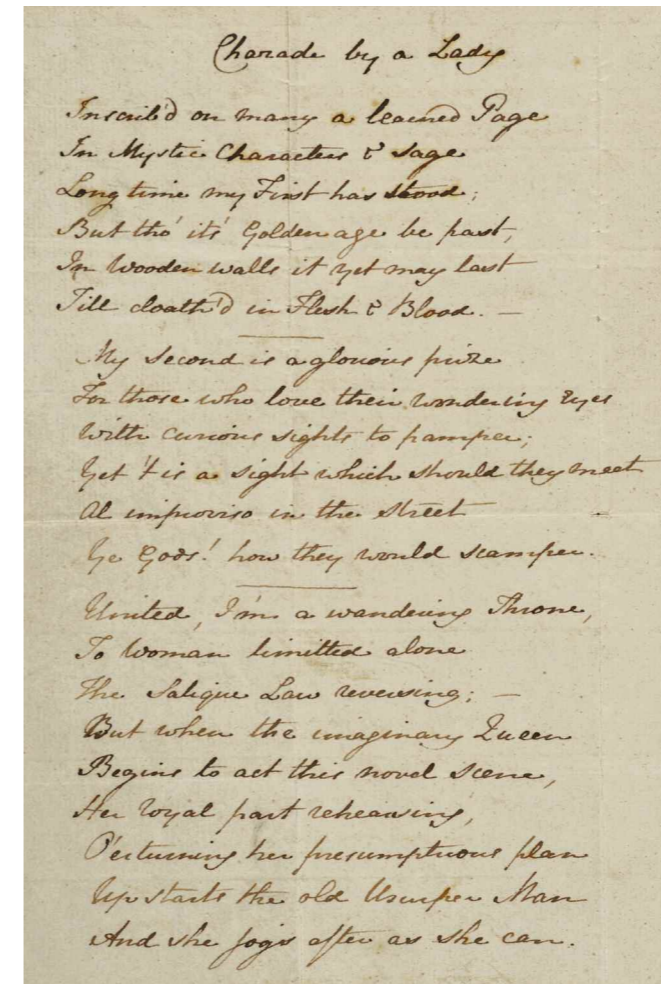 Charade by a Lady
Inscrib'd on many a learned Page
In Mystic Characters & Sage
Long time my First has stood;
But tho' its' Golden age be past,
In Wooden walls it yet may last
Till cloath'd in Flesh & Blood. —
My Second is a glorious prize
For those who love their wondering Eyes
With curious sights to pamper;
Yet 't is a sight which should they meet
Al improviso in the Street
Ye Gods! how they would scamper.
United, I'm a wandering Throne,
To Woman limitted alone
The Salique Law reversing; —
But when the imaginary Queen
Begins to act this novel Scene,
Her royal part rehearsing,
O'erturning her presumptuous plan
Up starts the old Usurper Man
And she jogs after as she can.